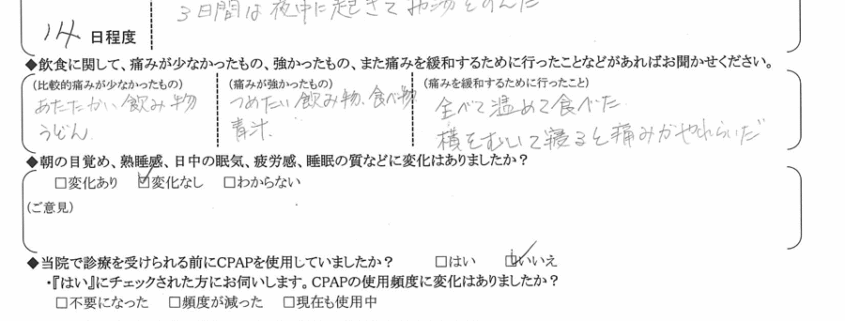 3日間は夜中に起きてお湯をのんだ
14 日程度
◆飲食に関して、痛みが少なかったもの、強かったもの、また痛みを緩和するために行ったことなどがあればお聞かせください。
(比較的痛みが少なかったもの) (痛みが強かったもの) (痛みを緩和するために行ったこと)
あたたかい飲み物 つめたい飲み物、食べ物 全べて温めて食べた
うどん 青汁 横をむいて寝ると痛みがやわらいだ
◆朝の目覚め、熟睡感、日中の眠気、疲労感、睡眠の質などに変化はありましたか？
□変化あり ☑変化なし □わからない
(ご意見)
◆当院で診療を受けられる前にCPAPを使用していましたか？ □はい ☑いいえ
・『はい』にチェックされた方にお伺いします。CPAPの使用頻度に変化はありましたか？
□不要になった □頻度が減った □現在も使用中